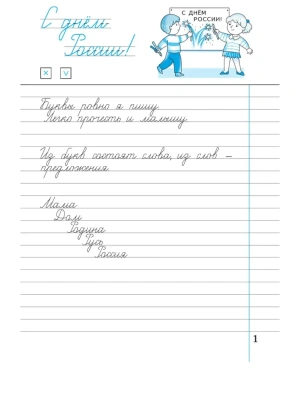 С днём
России!
С ДНЁМ
РОССИИ!
x v
Буквы ровно я пишу
Легко прочесть и малышу
Из букв состоят слова, из слов –
предложения
Мама
Дом
Родина
Русь
Россия
1